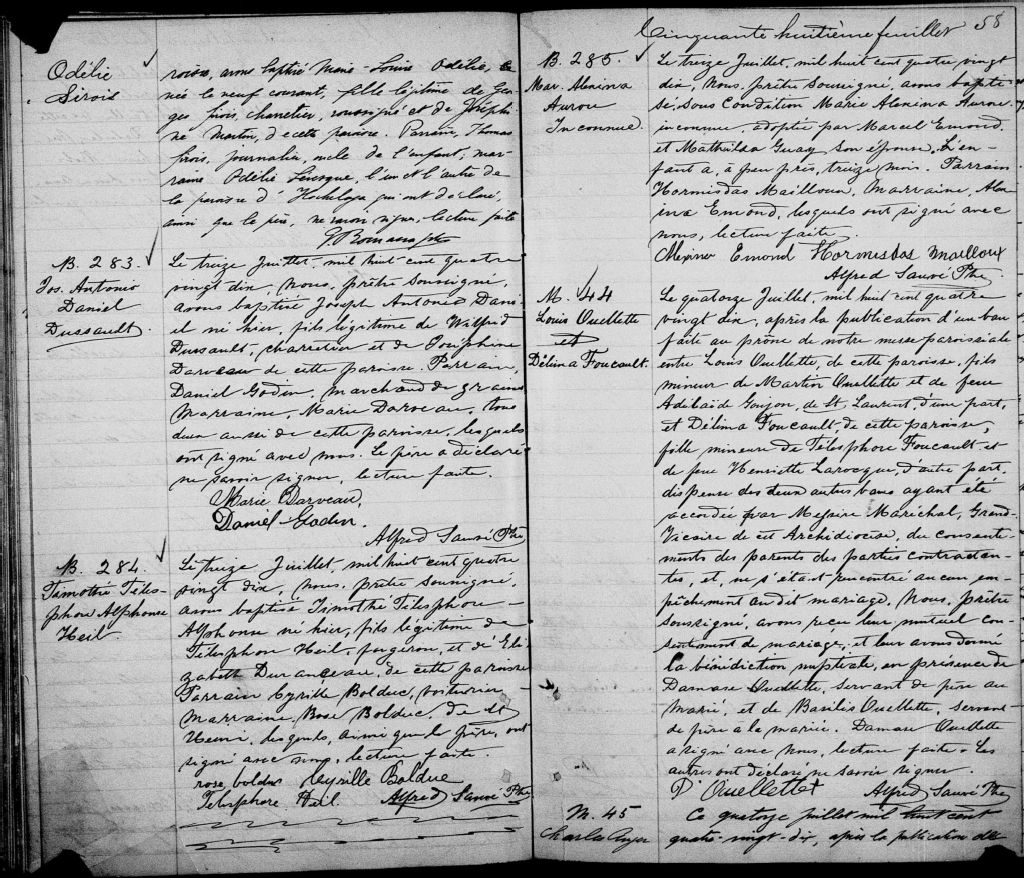 Odélie
Sirois
roisse, avons baptisé Marie-Louise Odélie,
née le neuf courant, fille légitime de Geor-
ges Sirois, charretier, soussigné et de Joséphi-
ne Martin, de cette paroisse. Parrain, Thomas
Sirois, journalier, oncle de l'enfant, mar-
raine Odélie Levesque, l'un et l'autre de
la paroisse d'Hochelaga qui ont déclaré,
ainsi que le père, ne savoir signer, lecture faite
B. 283.
Jos. Antonio
Daniel
Dussault.
Le treize Juillet, mil huit cent quatre
vingt dix, Nous, prêtre soussigné,
avons baptisé Joseph Antonio Dani-
el né hier, fils légitime de Wilfrid
Dussault, charretier et de Joséphine
Darveau de cette paroisse. Parrain,
Daniel Godin, marchand de grains
Marraine, Marie Darveau, tous
deux aussi de cette paroisse, lesquels
ont signé avec nous. Le père a déclaré
ne savoir signer, lecture faite.
Marie Darveau,
Daniel Godin.
Alfred Sauvé Ptre
B. 284.
Timothé Téles-
phore Alphonse
Heil
Le treize Juillet, mil huit cent quatre
vingt dix, Nous, prêtre soussigné,
avons baptisé Timothé Télesphore
Alphonse né hier, fils légitime de
Télesphore Heil, forgeron, et de Eli-
zabeth Duranceau, de cette paroisse
Parrain Cyrille Bolduc, voiturier
Marraine, Rose Bolduc, de St
Henri, lesquels, ainsi que le père, ont
signé avec nous, lecture faite.
rose bolduc Cyrille Bolduc
Telesphore Heil Alfred Sauvé Ptre
Cinquante huitième feuillet 58
B. 285.
Mar. Alexina
Aurore
Inconnue.
Le treize Juillet, mil huit cent quatre vingt
dix, Nous, prêtre soussigné, avons bapti-
sé, sous condition Marie Alexina Aurore
inconnue, adoptée par Marcel Emond
et Mathilda Guay son épouse. L'en-
fant a, à peu près, treize mois. Parrain
Hormisdas Mailloux, Marraine, Alex-
ina Emond, lesquels ont signé avec
nous, lecture faite.
Alexina Emond Hormisdas Mailloux
Alfred Sauvé Ptre
M. 44
Louis Ouellette
et
Délima Foucault.
Le quatorze Juillet, mil huit cent quatre
vingt dix, après la publication d'un ban
faite au prône de notre messe paroissiale
entre Louis Ouellette, de cette paroisse, fils
mineur de Martin Ouellette et de feue
Adélaïde Goujon, de St. Laurent, d'une part,
et Délima Foucault, de cette paroisse,
fille mineure de Télesphore Foucault et
de feue Henriette Larocque, d'autre part,
dispense des deux autres bans ayant été
accordée par Messire Maréchal, Grand-
Vicaire de cet Archidiocèse, du consente-
ments des parents des parties contractan-
tes, et, ne s'étant rencontré aucun em-
pêchement au dit mariage, Nous, prêtre
soussigné, avons reçu leur mutuel con-
sentement de mariage, et leur avons donné
la bénédiction nuptiale, en présence de
Damase Ouellette, servant de père au
marié, et de Basilis Ouellette, servant
de père à la mariée. Damase Ouellette
a signé avec nous, lecture faite. Les
autres ont déclaré ne savoir signer.
D Ouellette Alfred Sauvé Ptre
M. 45
Charles
Ce quatorze juillet mil huit cent
quatre-vingt-dix, après la publication de